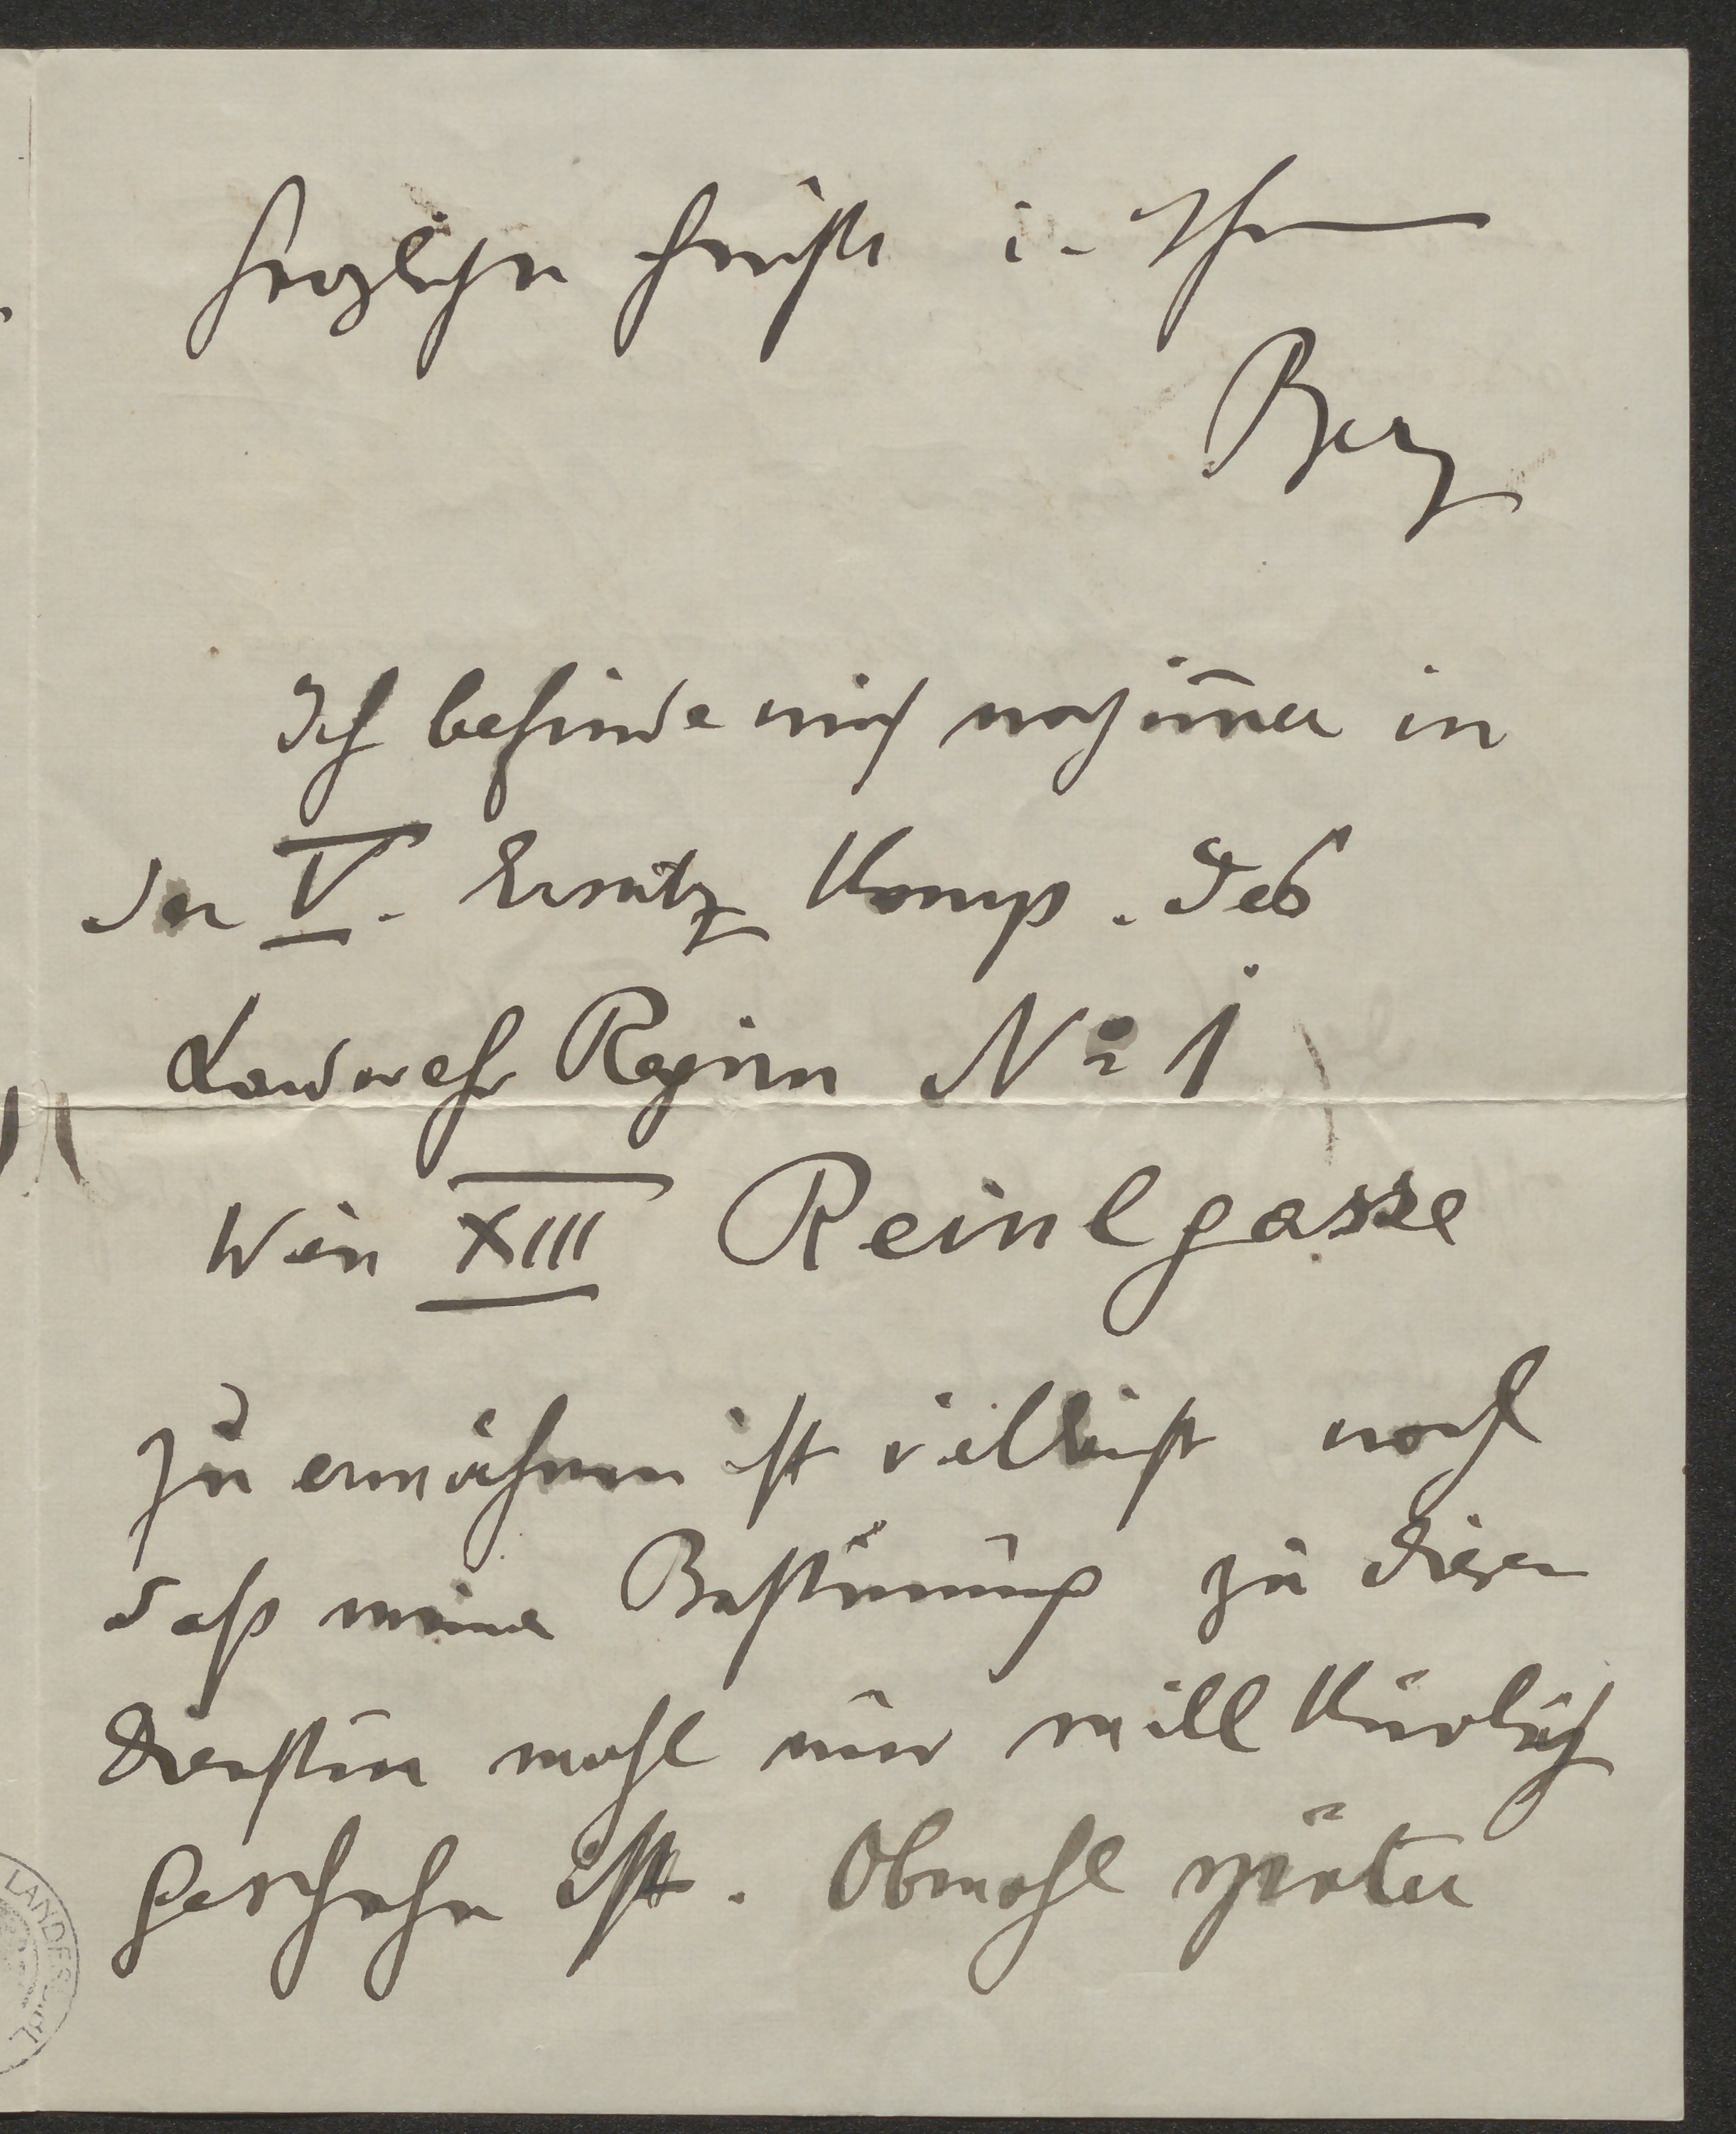 herzlichen Grüße i. Ihr
Berg
Ich befinde mich noch im̅er in
der V. Ersatz Komp. des
Landwehr Regim No 1
Wien XIII Reinlgasse
Zu erwähnen ist vielleicht noch
daß meine Bestim̅ung zu diesen
Diensten wohl nur willkürlich
geschehen ist. Obwohl später
LANDES